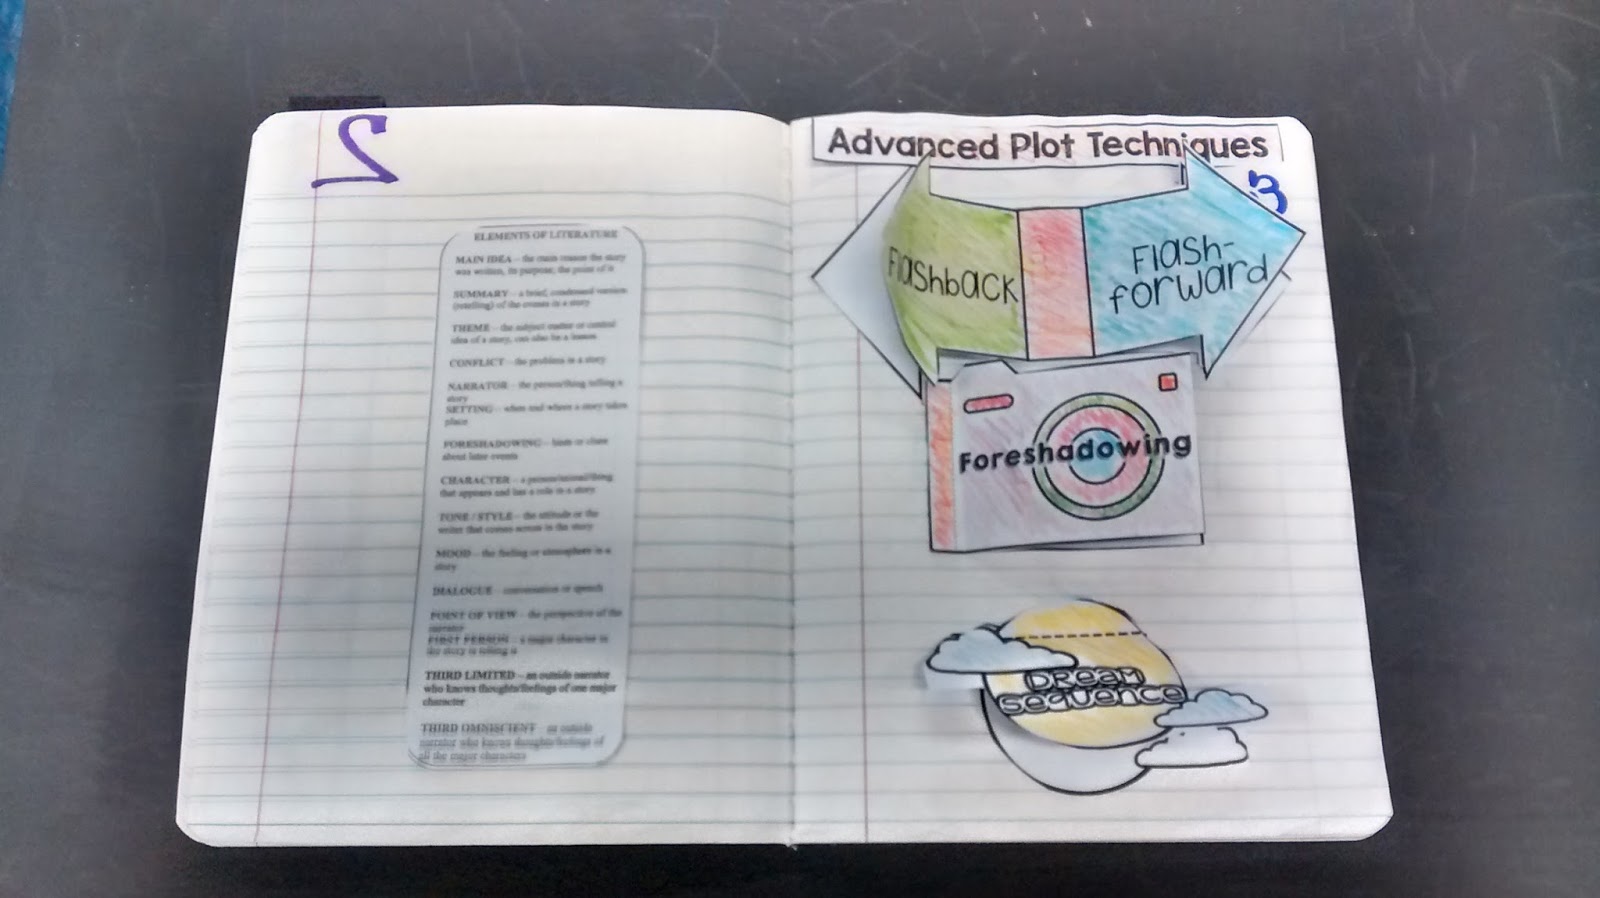 2
ELEMENTS OF LITERATURE
MAIN IDEA – the main reason the story
was written, its purpose, the point of it
SUMMARY – a brief, condensed version
(retelling) of the events in a story
THEME – the subject matter or central
idea of a story, can also be a lesson
CONFLICT – the problem in a story
NARRATOR – the person/thing telling a
story
SETTING – when and where a story takes
place
FORESHADOWING – hints or clues
about later events
CHARACTER – a person/animal/thing
that appears and has a role in a story
TONE / STYLE – the attitude or the
writer that comes across in the story
MOOD – the feeling or atmosphere in a
story
DIALOGUE – conversation or speech
POINT OF VIEW – the perspective of the
narrator
FIRST PERSON – a major character in
the story is telling it
THIRD LIMITED – an outside narrator
who knows thoughts/feelings of one major
character
THIRD OMNISCIENT – an outside
narrator who knows thoughts/feelings of
all the major characters
Advanced Plot Techniques
3
Flashback
Flash-
forward
Foreshadowing
Dream
Sequence